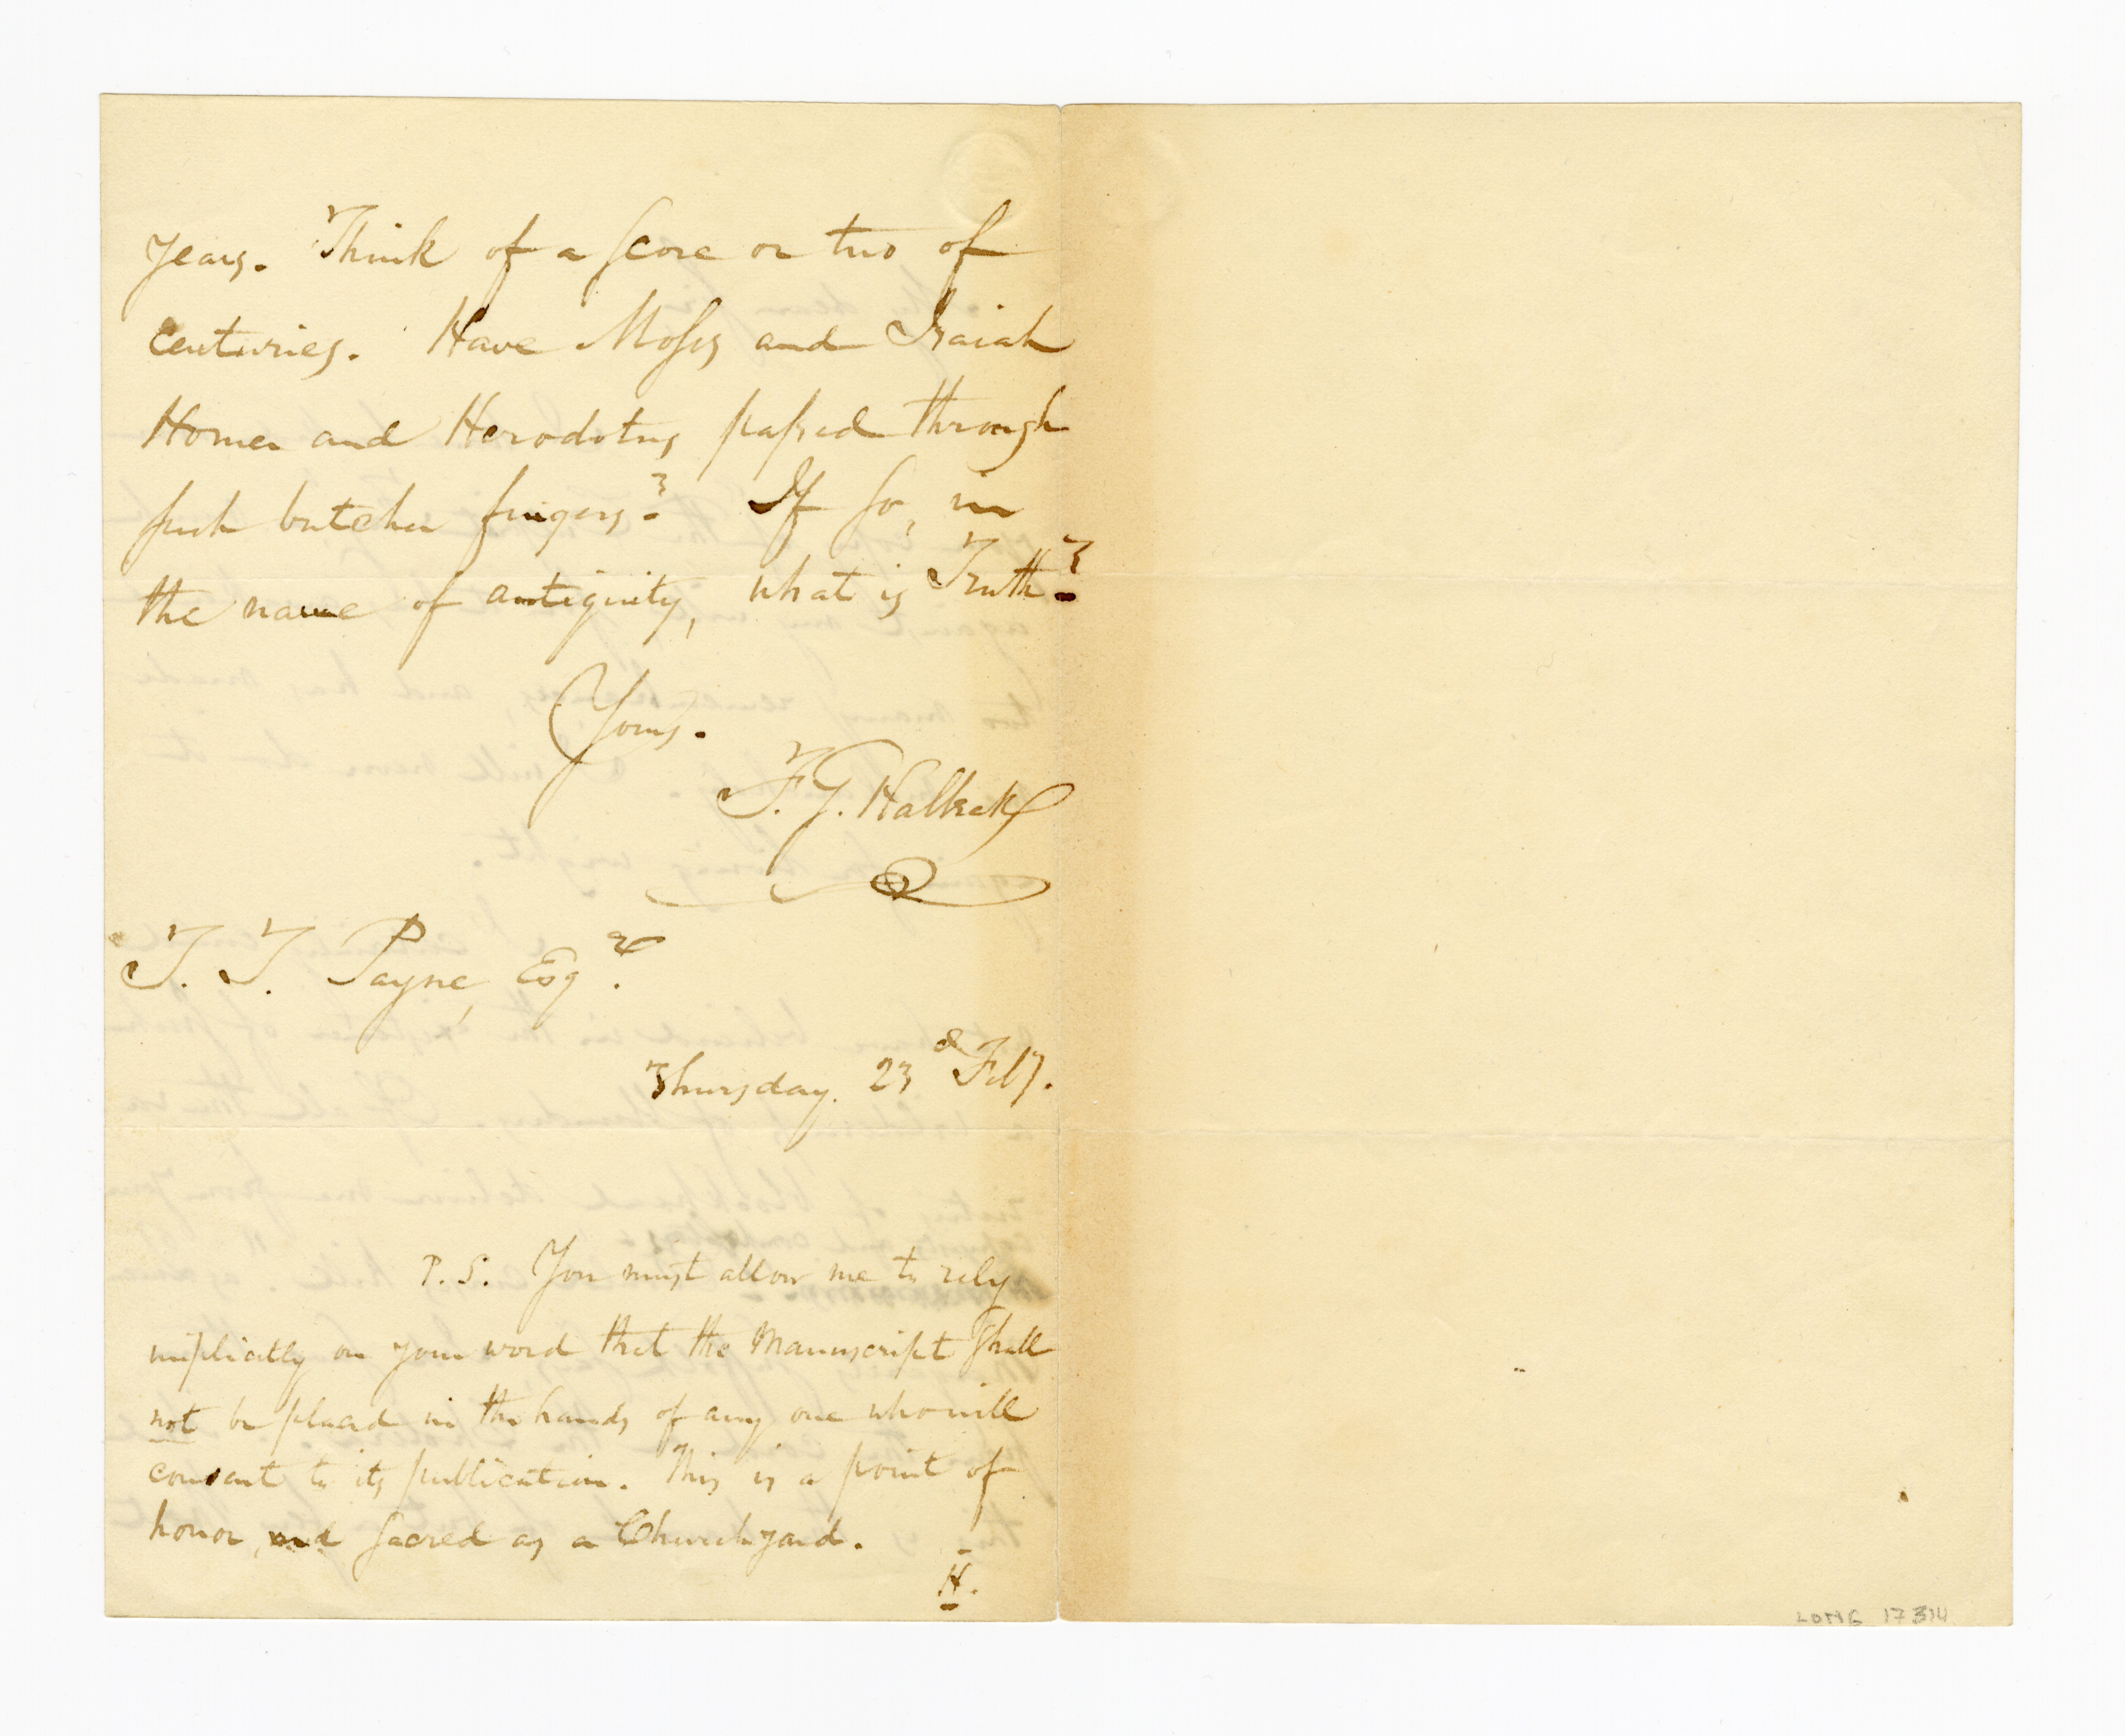 years. Think of a score or two of
centuries. Have Moses and Isaiah
Homer and Herodotus passed through
such butcher fingers? If so, in
the name of antiquity, what is Truth?
Yours.
F. G. Halleck
T. T. Payne, Esqr.
Thursday. 23d Feby.
P. S. You must allow me to rely
implicitly on your word that the Manuscript shall
not be placed in the hands of any one who will
consent to its publication. This is a point of
honor, and sacred as a Churchyard.
H.
LONG 17314